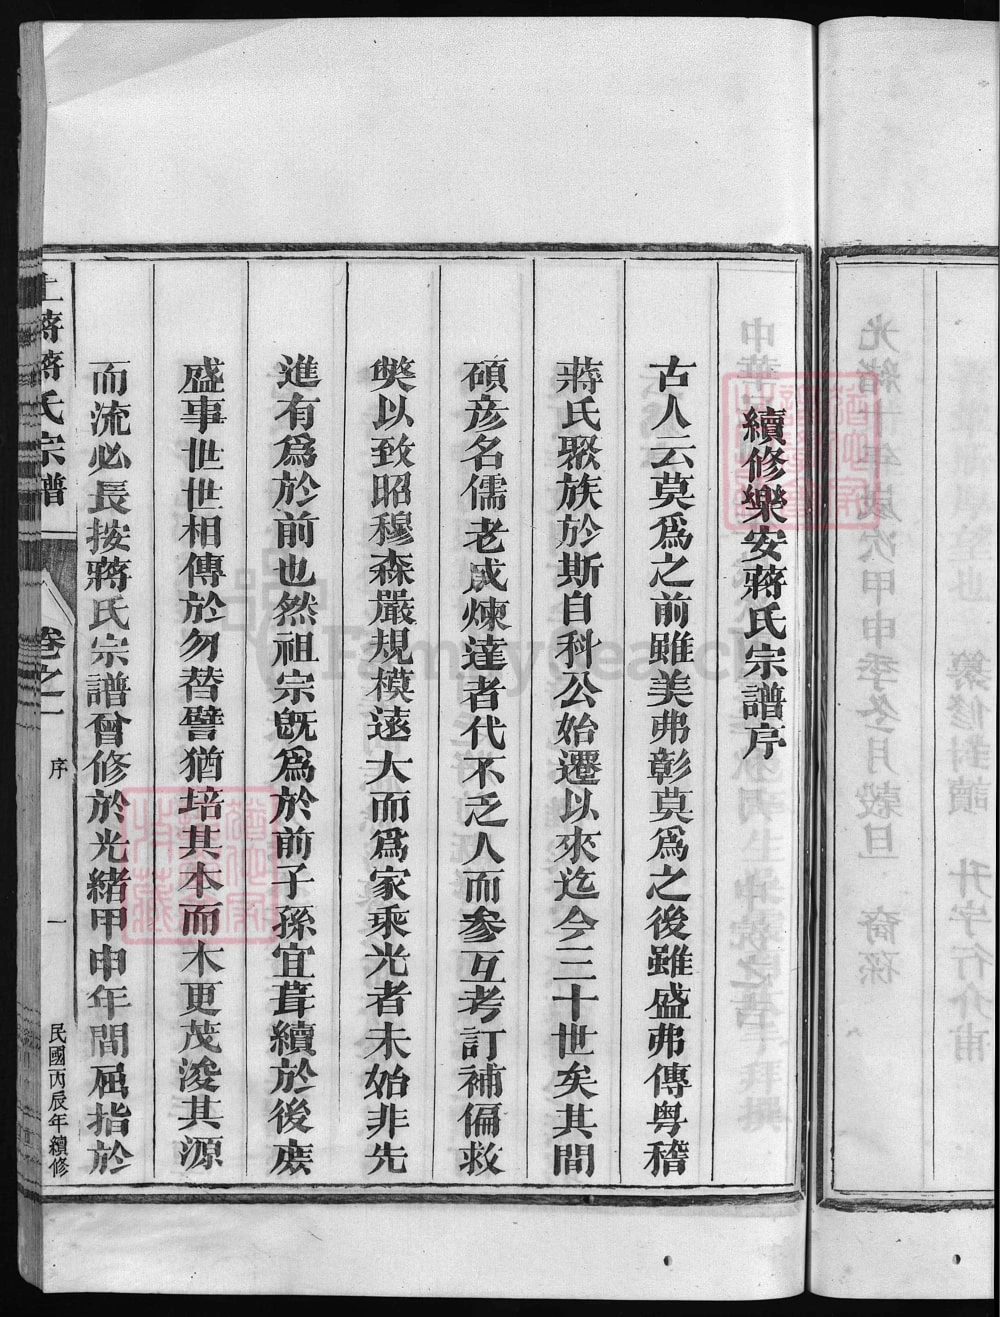 續修樂安蔣氏宗譜序
古人云莫爲之前雖美弗彰莫爲之後雖盛弗傳粤稽
蔣氏聚族於斯自科公始遷以來迄今三十世矣其間
碩彦名儒老成煉達者代不乏人而參互考訂補偏救
獘以致昭穆森嚴規模遠大而爲家乘光者未始非先
進有爲於前也然祖宗旣爲於前子孫宜葺續於後庻
盛事世世相傳於勿替譬猶培其本而木更茂浚其源
而流必長按蔣氏宗譜曾修於光緒甲申年間屈指於
上蔣蔣氏宗譜
卷之一
序
一
民國丙辰年續修
FamilySearch